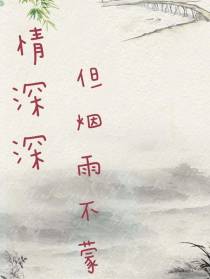 情深深
但烟雨不蒙